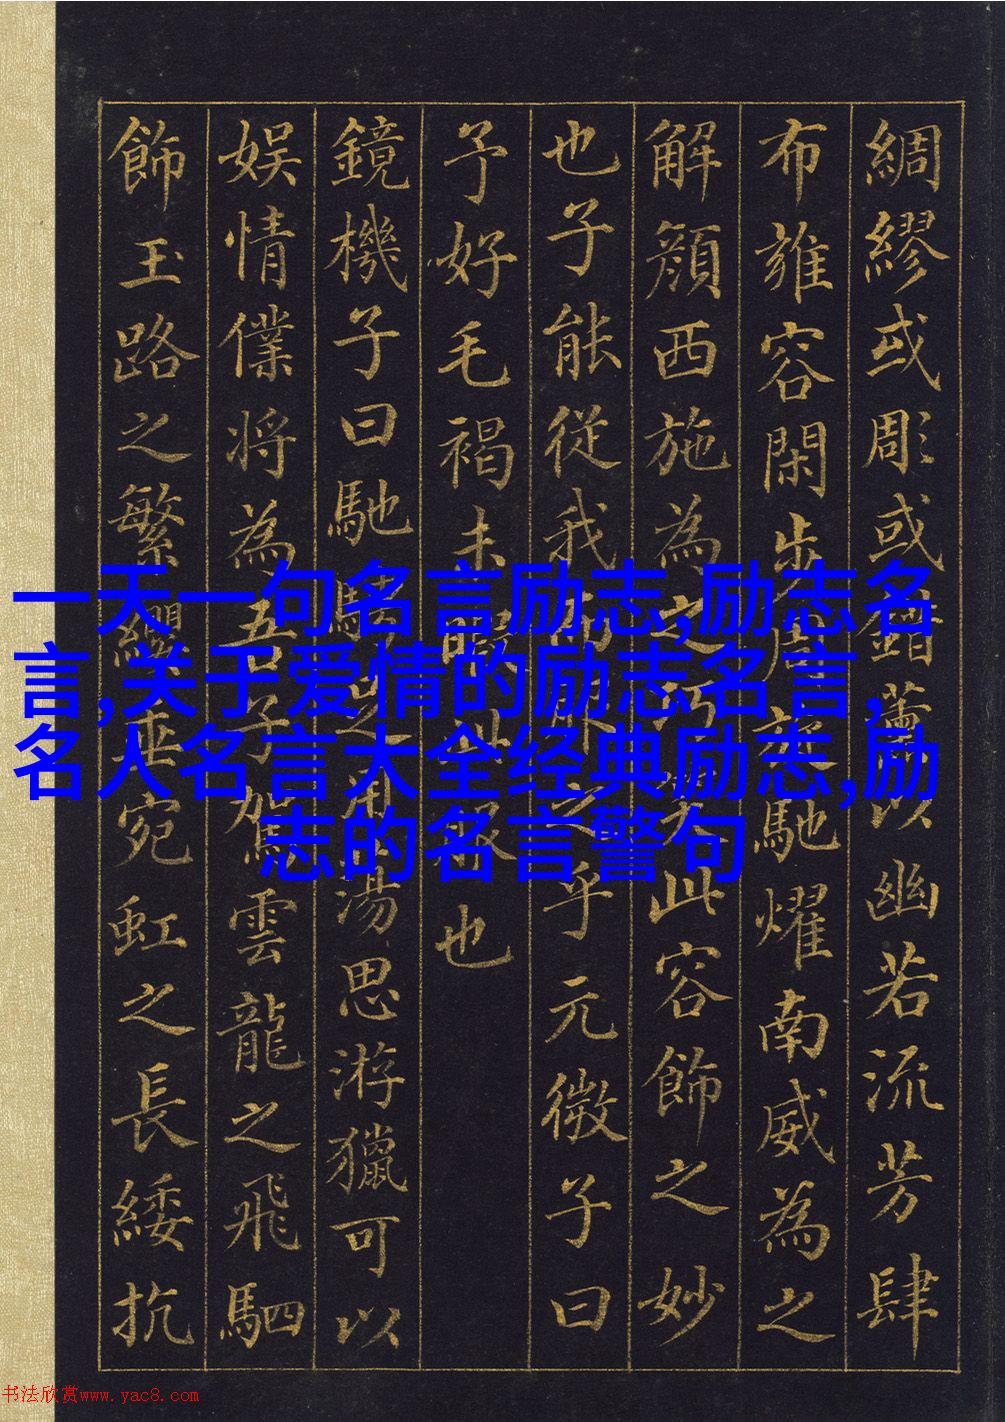 綢繆或彫或錯薰以幽若流芳肆
布雍容閑步周旋馳燿南威為之
解顏西施為之巧笑此容飾之妙
也子能從我而服之乎元微子曰
予好毛褐未暇此服也
鏡機子曰馳騁足用蕩思游獵可以
娛情僕將為吾子駕雲龍之飛駟
飾玉路之繁纓垂宛虹之長緌抗
一天一句名言励志,励志名
言,关于爱情的励志名言,
名人名言大全经典励志,励
志的名言警句
书法欣赏www.yac8.com